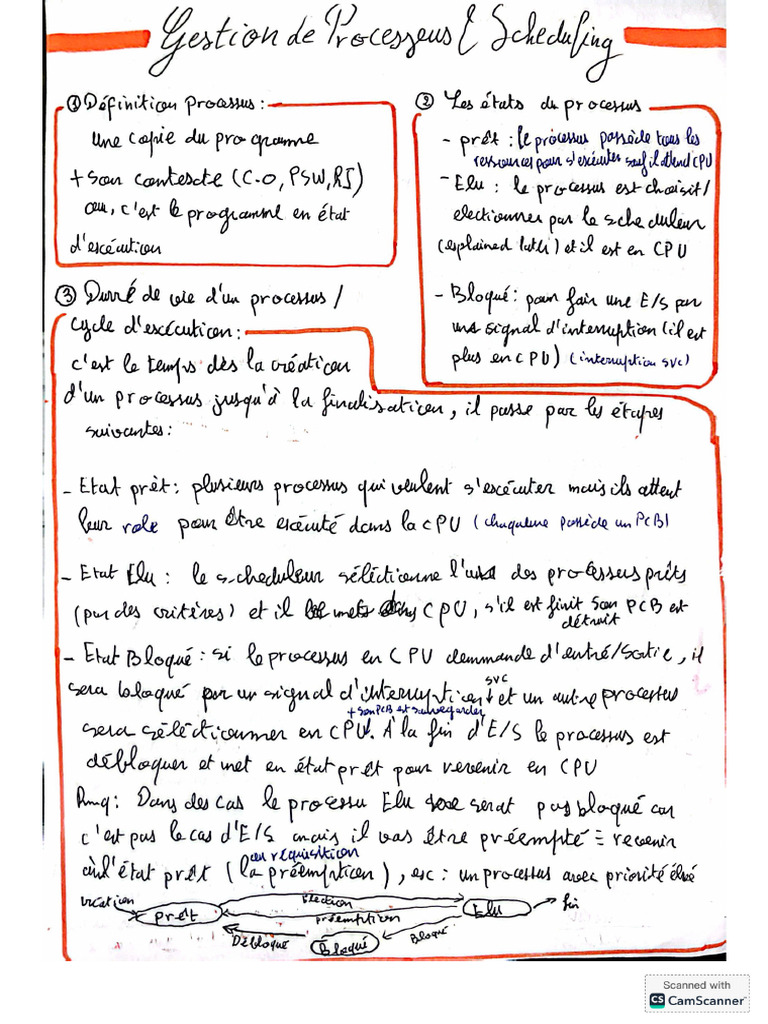 Gestion de Processeus & Scheduling
① Définition Processus :
une copie du programme
+ son contexte (C.O, PSW, RI)
ou, c'est le programme en état
d'exécution
② Les états du processus
- prêt : le processus possède tous les
ressources pour s'exécuter sauf il attend CPU
- Elu : le processus est choisit/
electionner par le scheduleur
(explained later) et il est en CPU
- Bloqué : pour fair une E/S par
un signal d'interruption (il est
plus en CPU) (interruption SVC)
③ Durré de vie d'un processus /
cycle d'exécution :
c'est le temps dès la création
d'un processus jusqu'à la finalisation, il passe par les étapes
suivantes :
- Etat prêt : plusieurs processus qui veulent s'exécuter mais ils attent
leur role pour être exécuté dans la CPU (chaqu'une possède un PCB)
- Etat Elu : le scheduleur séléctionne l'un des processus prêts
(par des critères) et il le mets CPU, s'il est finit son PCB est
détruit
- Etat Bloqué : si le processus en CPU demmande d'entré/sortie, il
sera bloqué par un signal d'interruption ↓ SVC et un autre processus
+ son PCB est sauvegarder
sera séléctionner en CPU. À la fin d'E/S le processus est
débloquer et met en état prêt pour revenir en CPU
Rmq : Dans des cas le processu Elu serat pas bloqué car
c'est pas le cas d'E/S mais il vas être préempté ≡ revenir
ou réquisition
à l'état prêt (la préemption), ex : un processus avec priorité élvé
création
prêt
élection
préemption
Elu
fin
Débloqué
Bloqué
Bloqué
Scanned with
CS CamScanner